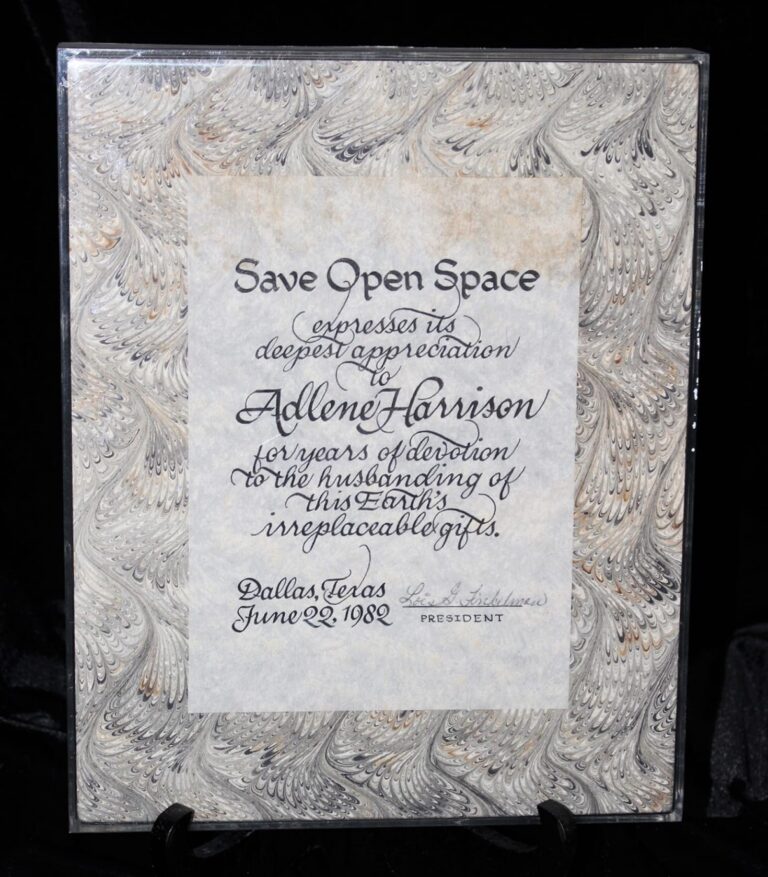 Save Open Space
expresses its
deepest appreciation
to
Adlene Harrison
for years of devotion
to the husbanding of
this Earth's
irreplaceable gifts.
Dallas, Texas
June 22, 1982
Lois G
PRESIDENT